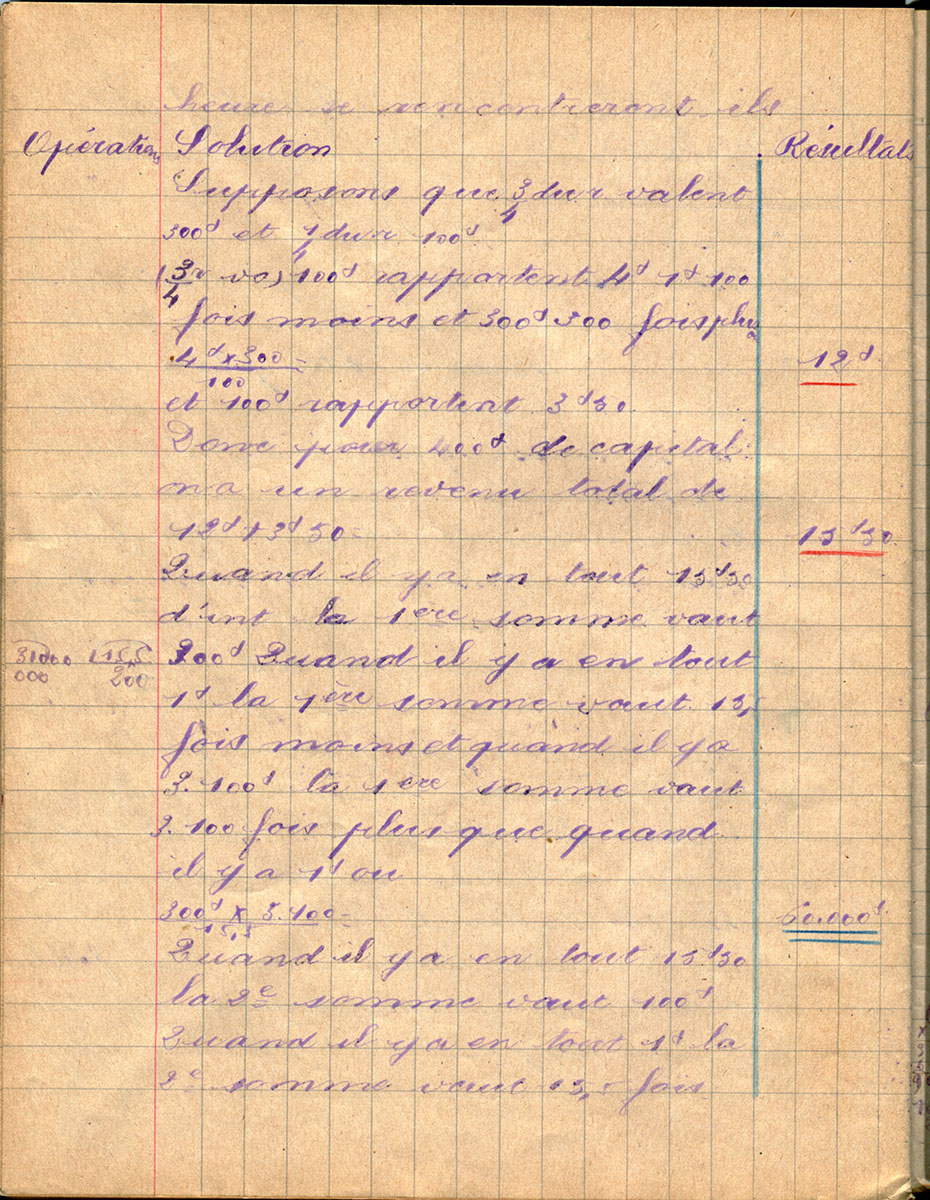 heure se rencontreront ils
Opérations Solution Résultats
Supposons que 3/4 du r valent
300d et 1/4 du r 100d
100d rapportent 4d 1d 100
fois moins et 300d 300 fois plus
4d x 300 = 12d
100
et 100d rapportent 3d50
Donc pour 400d de capital
on a un revenu total de
12d + 3d50 = 15d50
Quand il y a en tout 15d50
d'int la 1ère somme vaut
31000 155 300d Quand il y a en tout
000 200
1d la 1ère somme vaut 15,5
fois moins et quand il y a
3.100d la 1ère somme vaut
3.100 fois plus que quand
il y a 1d ou
300d x 3.100 = 60.000d
15,5
Quand il y a en tout 15d50
la 2e somme vaut 100d
Quand il y a en tout 1d la
2e somme vaut 15,5 fois